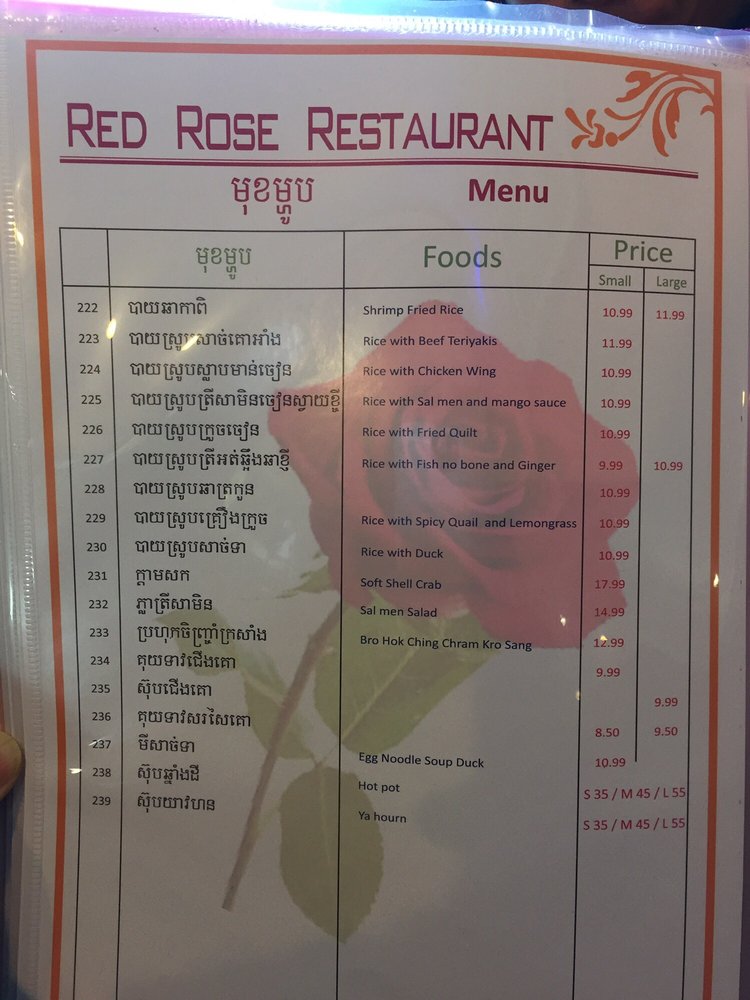 RED ROSE RESTAURANT
មុខម្ហូប Menu
មុខម្ហូប Foods Price
Small Large
222 បាយឆាកាពិ Shrimp Fried Rice 10.99 11.99
223 បាយស្រូបសាច់គោអាំង Rice with Beef Teriyakis 11.99
224 បាយស្រូបស្លាបមាន់ចៀន Rice with Chicken Wing 10.99
225 បាយស្រូបត្រីសាមិនចៀនស្វាយខ្ចី Rice with Sal men and mango sauce 10.99
226 បាយស្រូបក្រួចចៀន Rice with Fried Quilt 10.99
227 បាយស្រូបត្រីអត់ឆ្អឹងឆាខ្ញី Rice with Fish no bone and Ginger 9.99 10.99
228 បាយស្រូបឆាត្រកួន 10.99
229 បាយស្រូបគ្រឿងក្រួច Rice with Spicy Quail and Lemongrass 10.99
230 បាយស្រូបសាច់ទា Rice with Duck 10.99
231 ក្ដាមសក Soft Shell Crab 17.99
232 ភ្លាត្រីសាមិន Sal men Salad 14.99
233 ប្រហុកចិញ្ច្រាំក្រសាំង Bro Hok Ching Chram Kro Sang 12.99
234 គុយទាវជើងគោ 9.99
235 ស៊ុបជើងគោ 9.99
236 គុយទាវសរសៃគោ 8.50 9.50
237 មីសាច់ទា Egg Noodle Soup Duck 10.99
238 ស៊ុបឆ្នាំងដី Hot pot S 35 / M 45 / L 55
239 ស៊ុបយាវហន Ya hourn S 35 / M 45 / L 55